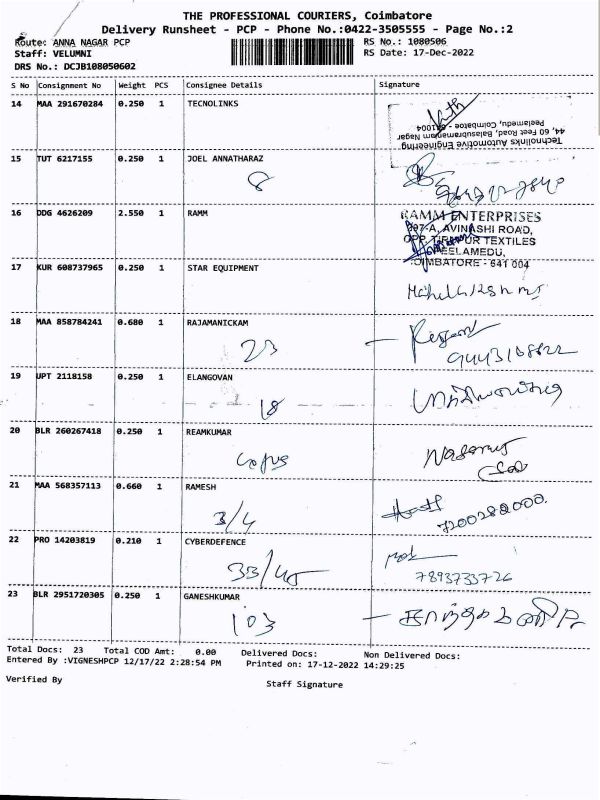 THE PROFESSIONAL COURIERS, Coimbatore
Delivery Runsheet - PCP - Phone No.:0422-3505555 - Page No.:2
Route: ANNA NAGAR PCP RS No.: 1080506
Staff: VELUMNI RS Date: 17-Dec-2022
DRS No.: DCJB108050602
S No Consignment No Weight PCS Consignee Details Signature
14 MAA 291670284 0.250 1 TECNOLINKS
Technolinks Automotive Engineering
44, 60 Feet Road, Balasubramaniam Nagar
Peelamedu, Coimbatoe - 641004
15 TUT 6217155 0.250 1 JOEL ANNATHARAZ
8
16 DDG 4626209 2.550 1 RAMM
RAMM ENTERPRISES
397-A, AVINASHI ROAD,
OPP. TIRUPUR TEXTILES
PEELAMEDU,
COIMBATORE - 641 004
17 KUR 608737965 0.250 1 STAR EQUIPMENT
18 MAA 858784241 0.680 1 RAJAMANICKAM
23
19 UPT 2118158 0.250 1 ELANGOVAN
18
20 BLR 260267418 0.250 1 REAMKUMAR
21 MAA 568357113 0.660 1 RAMESH
3/4 7200282000
22 PRO 14203819 0.210 1 CYBERDEFENCE
33/45 7893733726
23 BLR 2951720305 0.250 1 GANESHKUMAR
103
Total Docs: 23 Total COD Amt: 0.00 Delivered Docs: Non Delivered Docs:
Entered By :VIGNESHPCP 12/17/22 2:28:54 PM Printed on: 17-12-2022 14:29:25
Verified By Staff Signature